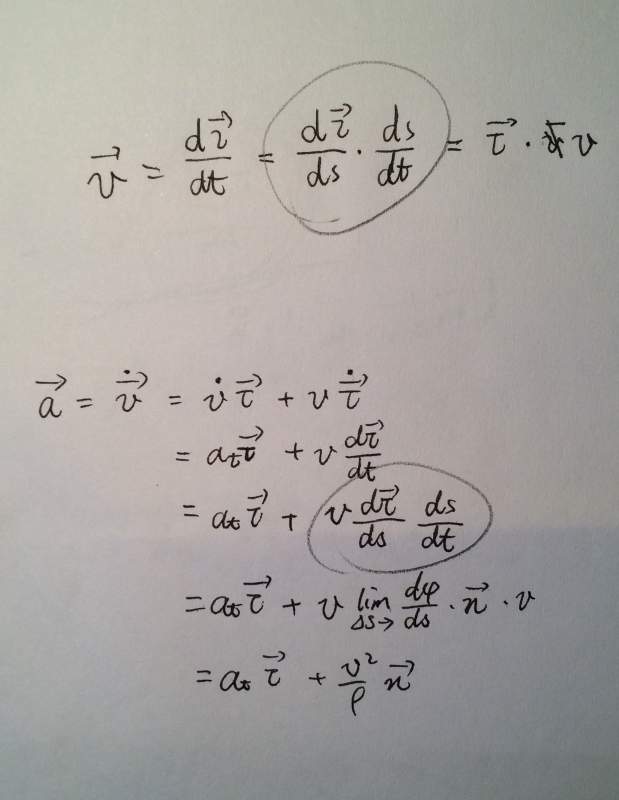 v⃗ = dτ⃗/dt = dτ⃗/ds · ds/dt = τ⃗ · v
a⃗ = v⃗̇ = v̇ τ⃗ + v τ⃗̇
= aₜτ⃗ + v dτ⃗/dt
= aₜ τ⃗ + v dτ⃗/ds ds/dt
= aₜ τ⃗ + v lim Δs→ dφ/ds · n⃗ · v
= aₜ τ⃗ + v²/ρ n⃗